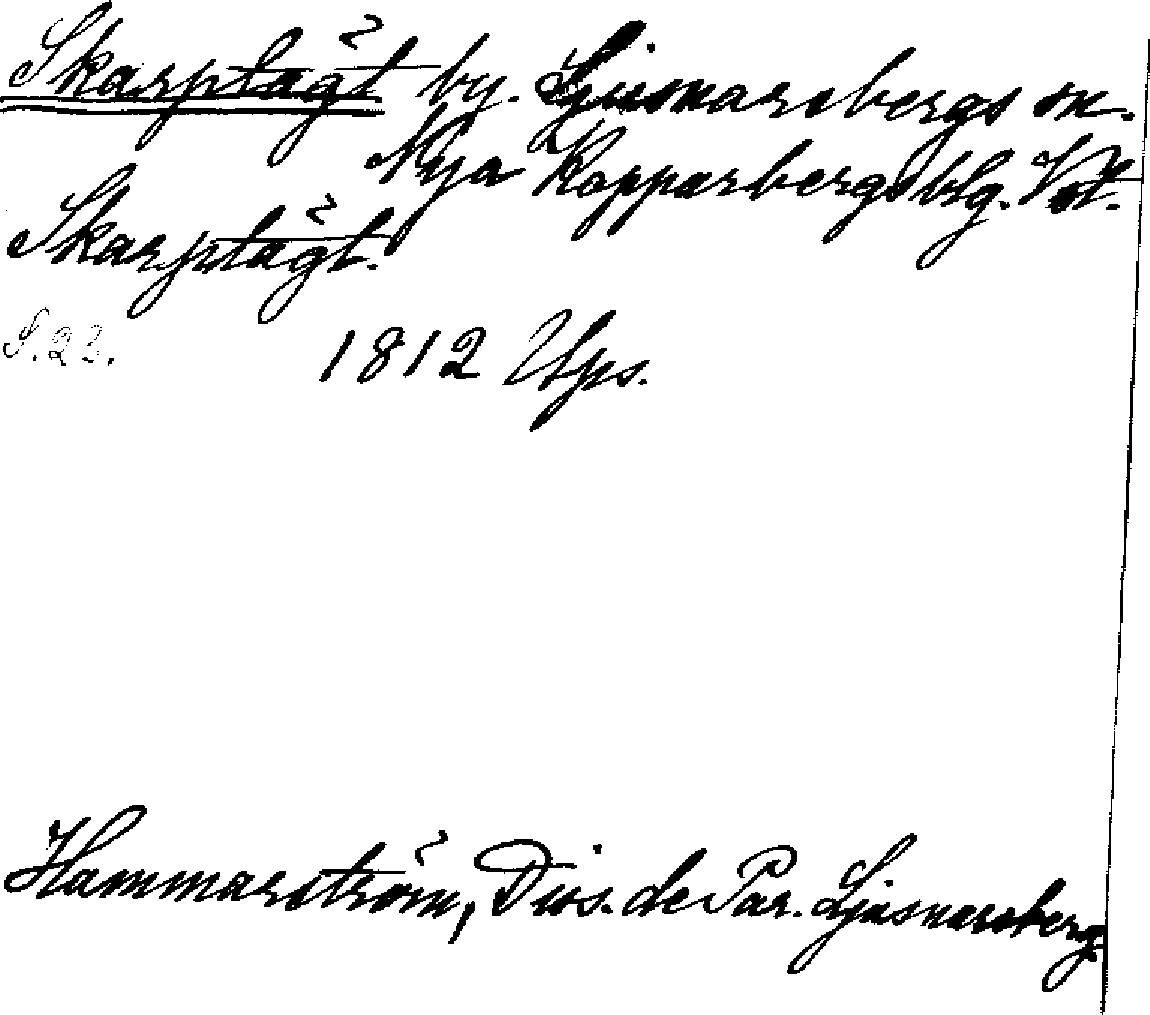 Skarptägt by. Ljusnarsbergs sn.
Nya Kopparbergs blg. Vstm.
Skarptägt.
S. 22. 1812 Ups.
Hammarström, Diss. de Par. Ljusnarsberg